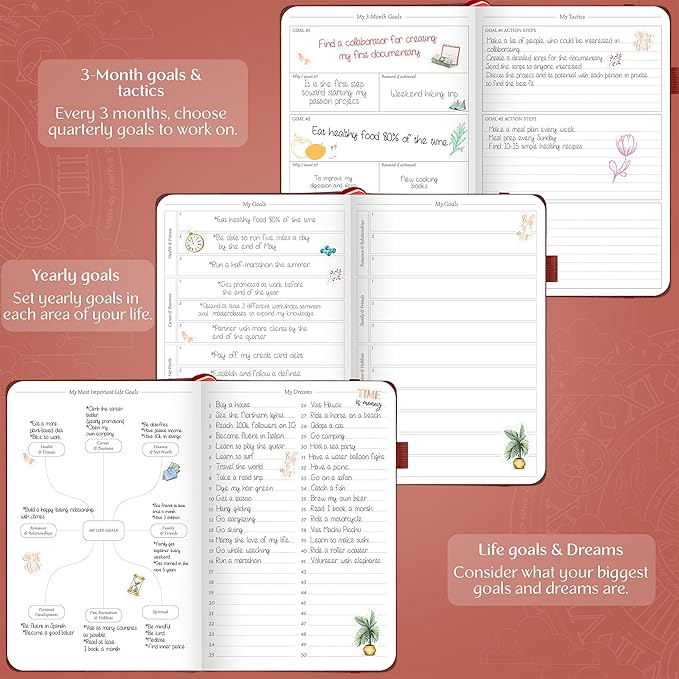 3-Month goals &
tactics
Every 3 months, choose
quarterly goals to work on.
My 3-Month Goals
GOAL #1
Find a collaborator for creating
my first documentary
Why I want it?
It is the first step
toward starting my
passion project
Reward if achieved
Weekend hiking trip
GOAL #2
Eat healthy food 80% of the time
Why I want it?
To improve my
digestion and
Reward if achieved
New cooking
books
My Tactics
GOAL #1 ACTION STEPS
Make a list of people who could be interested in
collaborating
Create a detailed script for the documentary
Send the script to anyone interested
Discuss the project and its potential with each person in private
to find the best fit
GOAL #2 ACTION STEPS
Make a meal plan every week
Meal prep every Sunday
Find 10-15 simple healthy recipes
Yearly goals
Set yearly goals in
each area of your life.
My Goals
Health & Fitness
1
*Eat healthy food 80% of the time
2
*Be able to run five miles a day
by the end of May
3
*Run a half-marathon this summer
Career & Business
1
*Get promoted at work before
the end of the year
2
*Attend at least 3 different workshops, seminars
and masterclasses to expand my knowledge
3
*Partner with more clients by the
end of the quarter
1
*Pay off my credit card debt
2
*Establish and follow a defined
My Goals
Romance & Relationships
1
2
3
Family & Friends
1
2
3
1
2
3
My Most Important Life Goals
*Eat a more
plant-based diet
*Bike to work
Health
& Fitness
*Climb the career
ladder
(yearly promotion)
*Open my
own company
Career
& Business
*Be debt-free
*Have passive income
*Have 10k in savings
Finance
& Net Worth
*Build a happy lasting relationship
with James
Romance
& Relationships
MY LIFE GOALS
*See friends at least
once a month
*Have 3 children
Family
& Friends
*Family get
together every
weekend
*Get married in the
next 5 years
Personal
Development
*Be fluent in Spanish
*Become a good baker
Fun, Recreation
& Hobbies
*Visit as many countries
as possible
*Read at least
1 book a month
Spiritual
*Be mindful
*Be kind
*Meditate
*Find inner peace
My Dreams
TIME
is money
1 Buy a house
2 See the Northern lights
3 Reach 100k followers on IG
4 Become fluent in Italian
5 Learn to play the guitar
6 Learn to surf
7 Travel the world
8 Take a road trip
9 Dye my hair green
10 Get a tattoo
11 Hang gliding
12 Go stargazing
13 Go skiing
14 Marry the love of my life
15 Go whale watching
16 Run a marathon
17
18
19
20
21
22
23
24
25
26 Visit Hawaii
27 Ride a horse on a beach
28 Adopt a cat
29 Go camping
30 Host a tea party
31 Have a water balloon fight
32 Have a picnic
33 Go on a safari
34 Catch a fish
35 Brew my own beer
36 Read 1 book a month
37 Ride a motorcycle
38 Visit Machu Picchu
39 Learn to make sushi
40 Ride a roller coaster
41 Volunteer with elephants
42
43
44
45
46
47
48
49
50
Life goals & Dreams
Consider what your biggest
goals and dreams are.